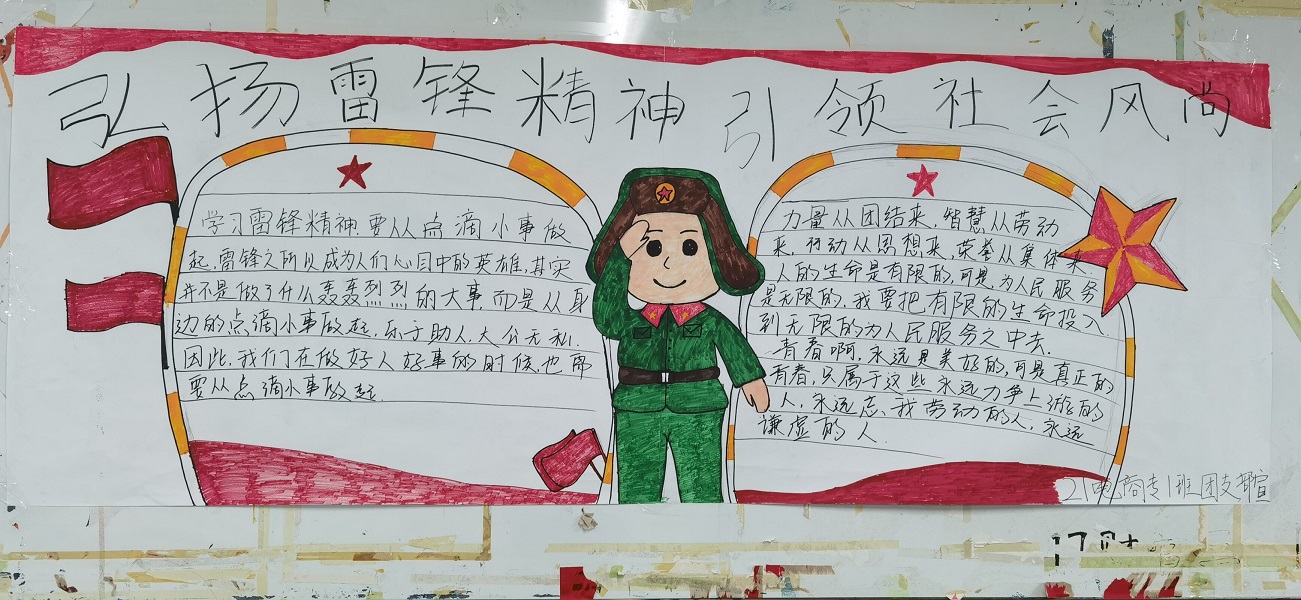 弘扬雷锋精神 引领社会风尚
学习雷锋精神要从点滴小事做
起,雷锋之所以成为人们心目中的英雄,其实
并不是做了什么轰轰烈烈的大事,而是从身
边的点滴小事做起,乐于助人,大公无私.
因此,我们在做好人好事的时候,也需
要从点滴小事做起.
力量从团结来,智慧从劳动
来,行动从思想来,荣誉从集体来.
人的生命是有限的,可是,为人民服务
是无限的,我要把有限的生命投入
到无限的为人民服务之中去.
青春啊,永远是美好的,可是真正的
青春,只属于这些永远力争上游的
人,永远忘我劳动的人,永远
谦虚的人.
21电商专1班团支部宣